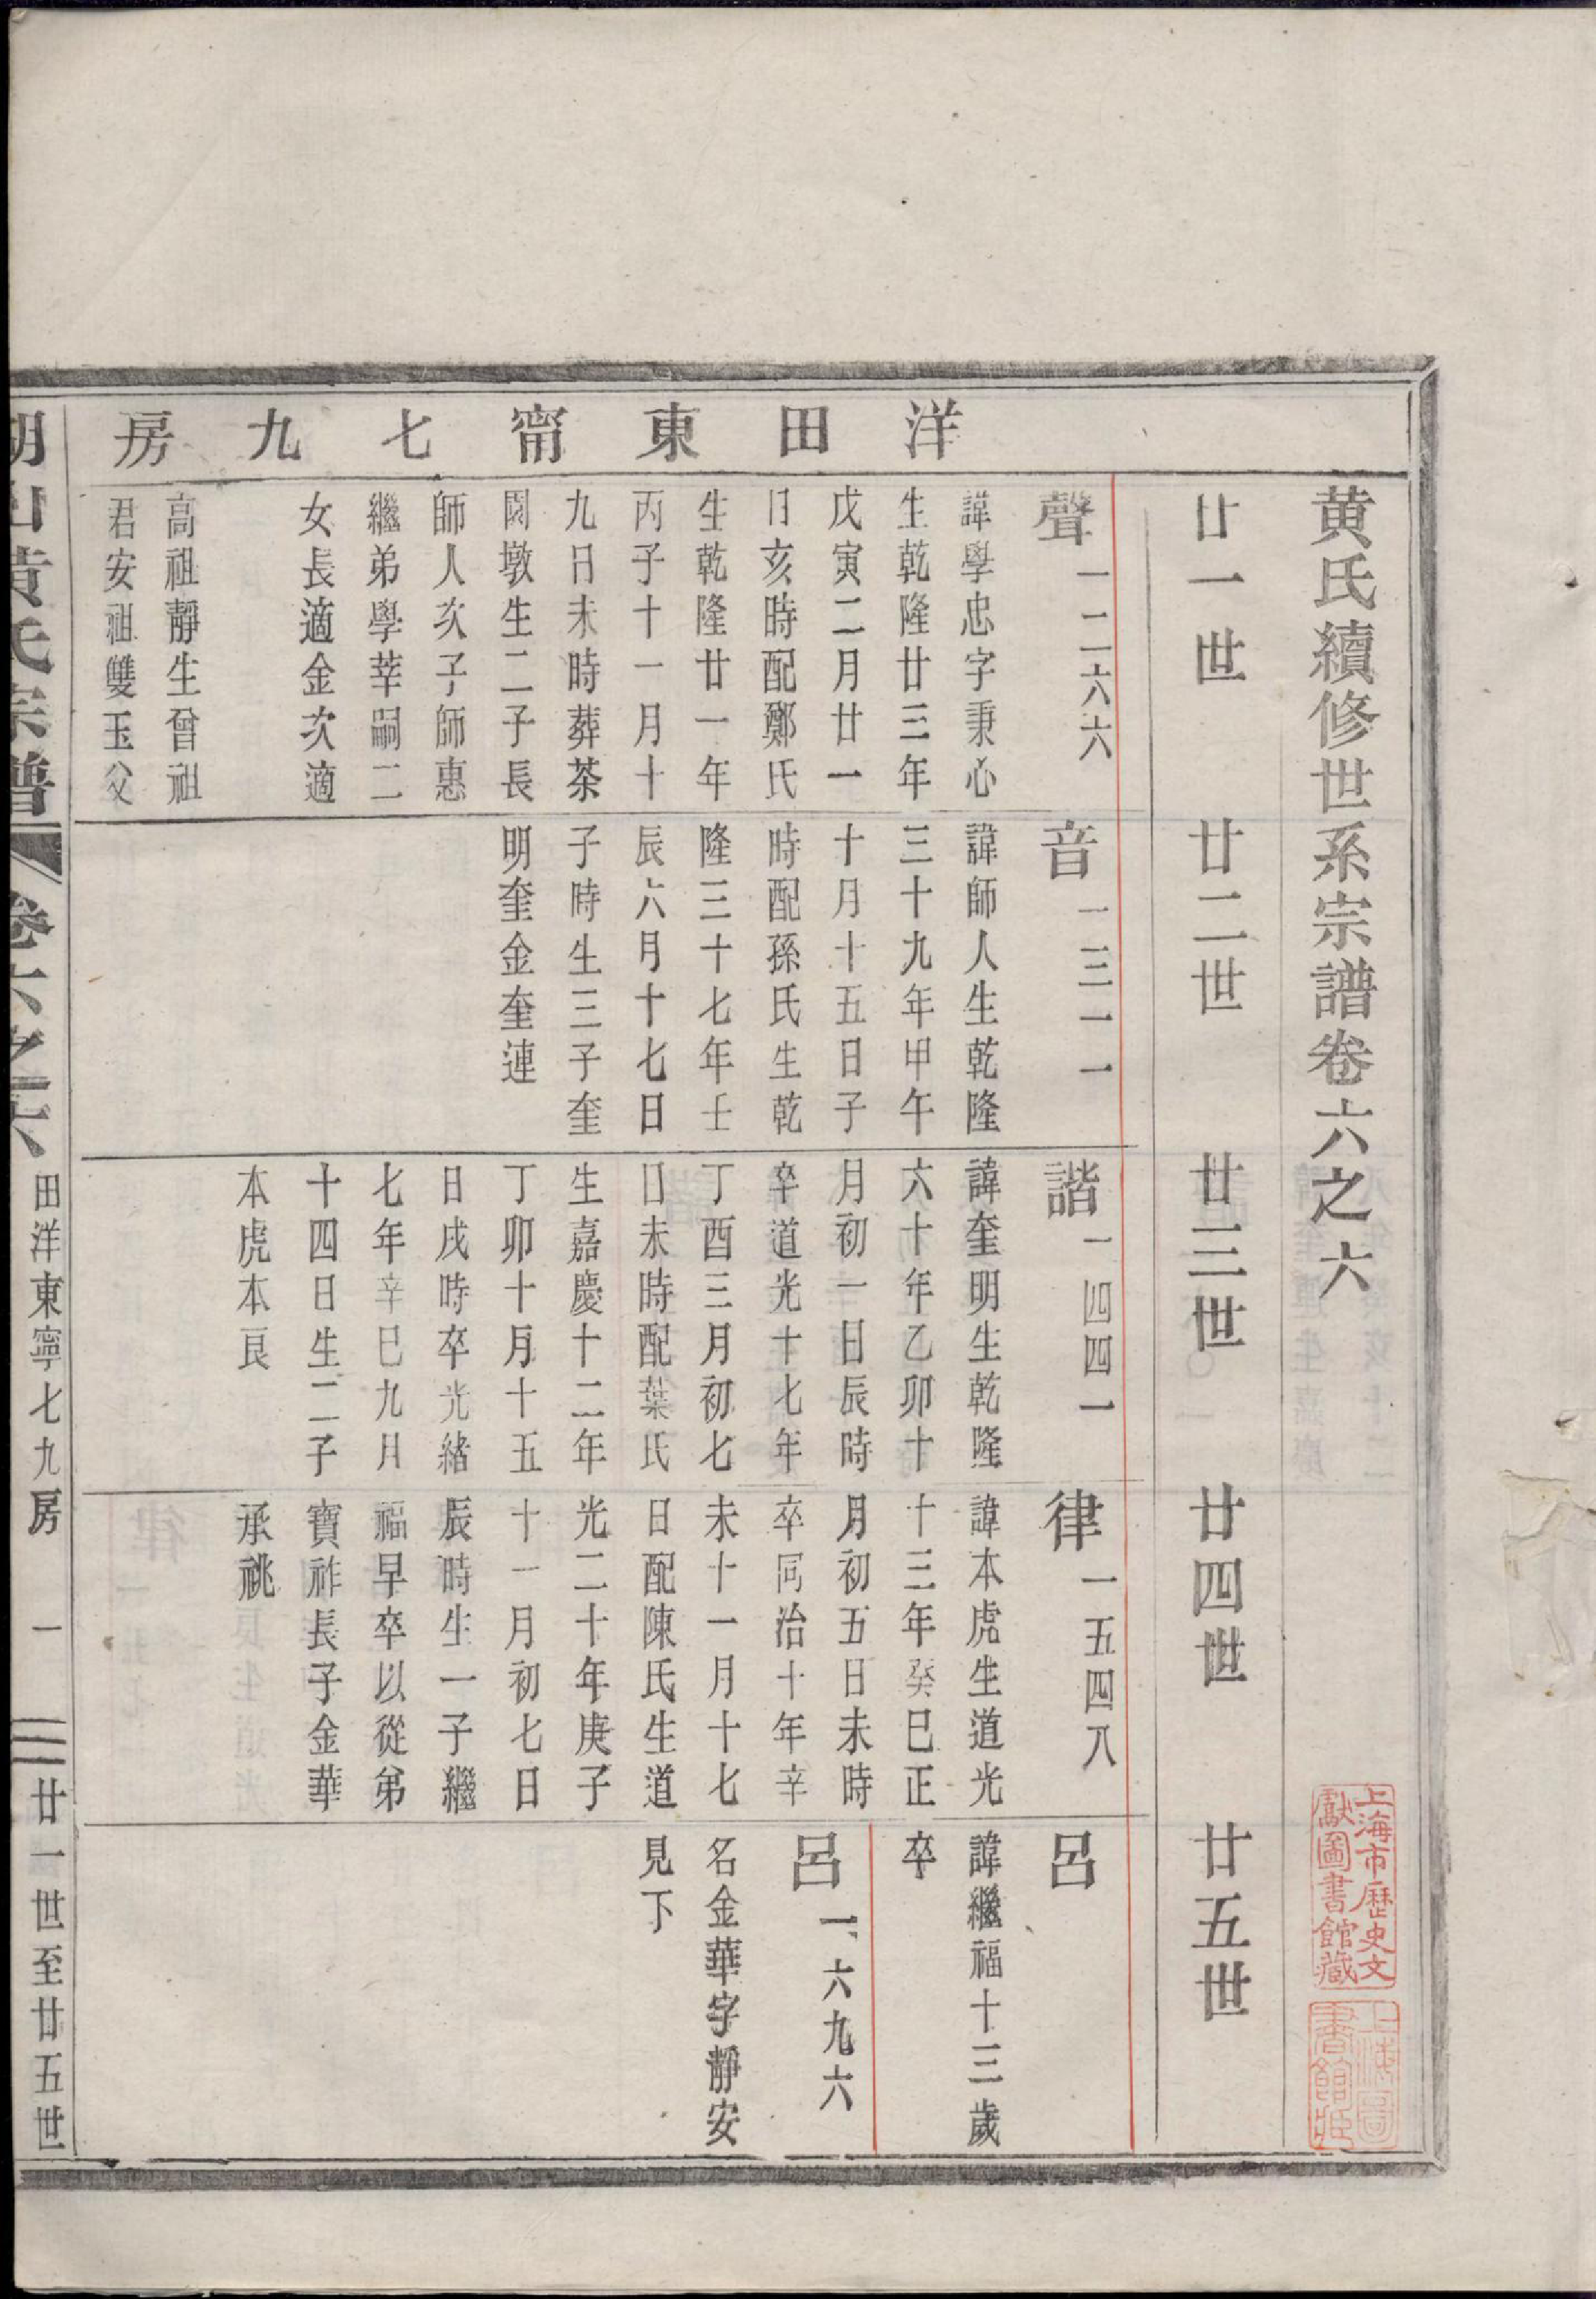 黄氏續修世系宗譜卷六之六
上海市歷史文
獻圖書館藏
上海圖
書館藏
廿一世
廿二世
廿三世
廿四世
廿五世
洋田東甯七九房
聲一二六六
諱學忠字秉心
生乾隆廿三年
戊寅二月廿一
日亥時配鄭氏
生乾隆廿一年
丙子十一月十
九日未時葬茶
園墩生二子長
師人次子師惠
繼弟學莘嗣二
女長適金次適
高祖靜生曾祖
君安祖雙玉父
音一三一一
諱師人生乾隆
三十九年甲午
十月十五日子
時配孫氏生乾
隆三十七年壬
辰六月十七日
子時生三子奎
明奎金奎連
諧一四四一
諱奎明生乾隆
六十年乙卯十
月初一日辰時
卒道光十七年
丁酉三月初七
日未時配葉氏
生嘉慶十二年
丁卯十月十五
日戌時卒光緒
七年辛巳九月
十四日生二子
本虎本良
律一五四八
諱本虎生道光
十三年癸巳正
月初五日未時
卒同治十年辛
未十一月十七
日配陳氏生道
光二十年庚子
十一月初七日
辰時生一子繼
福早卒以從弟
寶祚長子金華
承祧
呂
諱繼福十三歲
卒
呂一六九六
名金華字靜安
見下
湖山黄氏宗譜
卷六之六
田洋東寧七九房
一
廿一世至廿五世